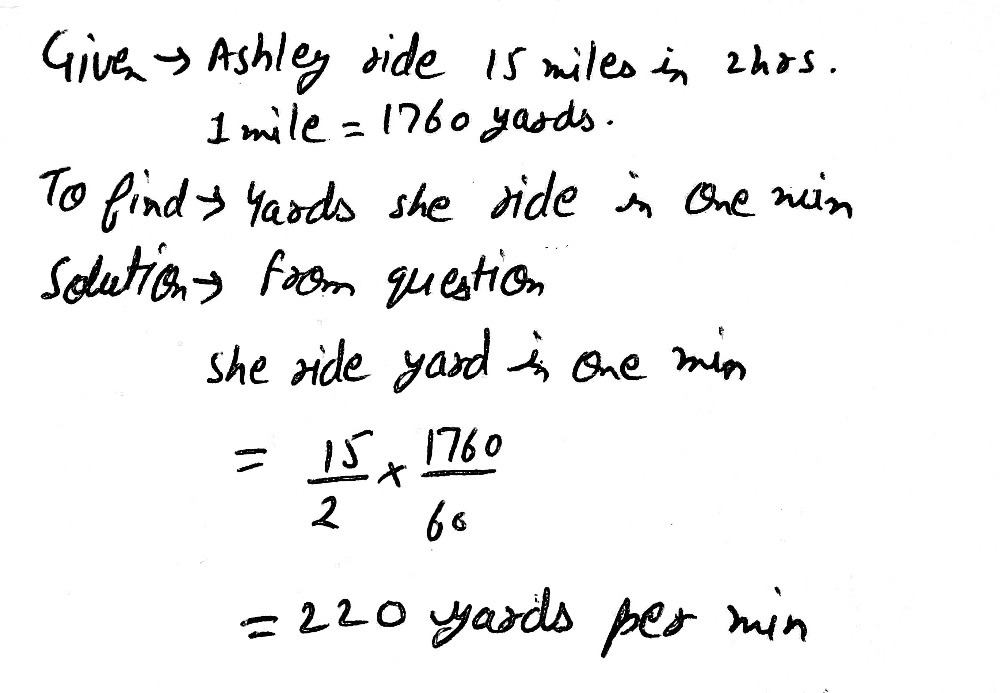 Given → Ashley ride 15 miles in 2hrs.
1 mile = 1760 yards.
To find → Yards she ride in one min
Solution → from question
she ride yard in one min
= 15/2 × 1760/60
= 220 yards per min